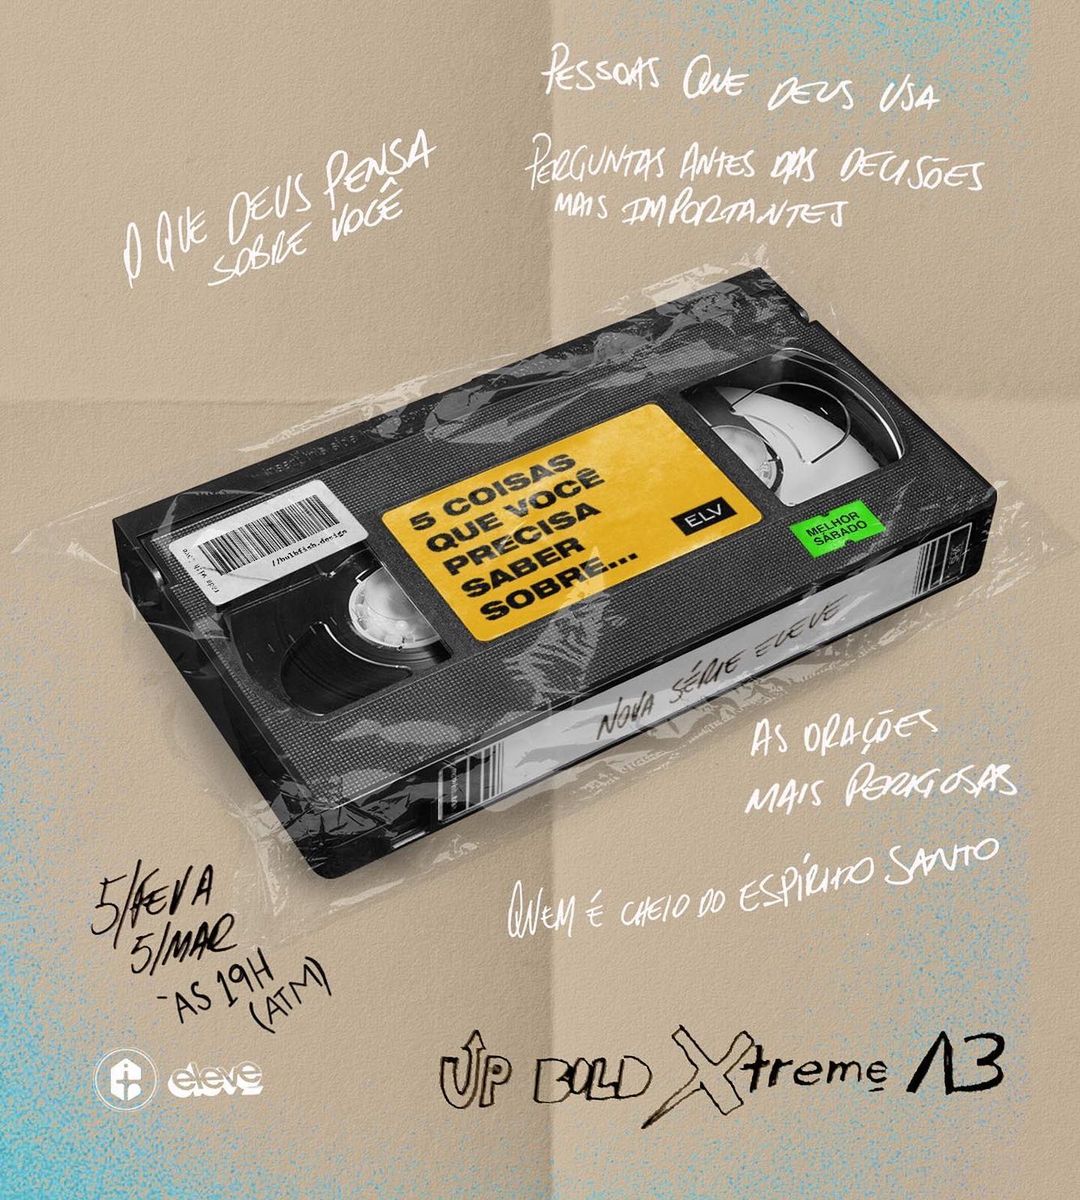 PESSOAS QUE DEUS USA
PERGUNTAS ANTES DAS DECISÕES
MAIS IMPORTANTES
O QUE DEUS PENSA
SOBRE VOCÊ
5 COISAS
QUE VOCÊ
PRECISA
SABER
SOBRE...
ELV
MELHOR
SÁBADO
//bulbfish.design
NOVA SÉRIE ELEVE
AS ORAÇÕES
MAIS PERIGOSAS
QUEM É CHEIO DO ESPÍRITO SANTO
5/FEV A
5/MAR
ÀS 19H
(ATM)
eleve
UP BOLD Xtreme